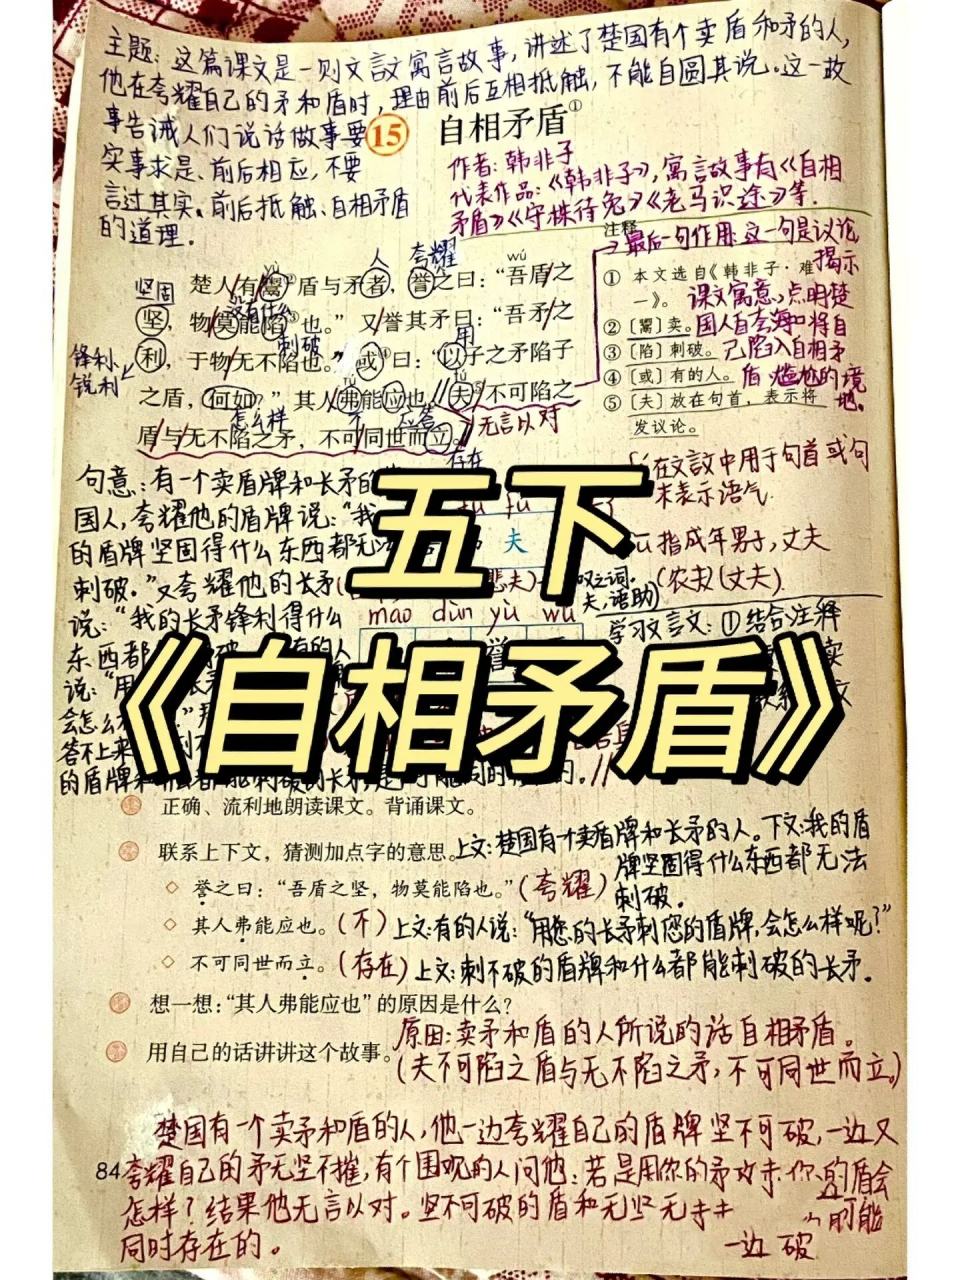 主题:这篇课文是一则文言文寓言故事,讲述了楚国有个卖盾和矛的人,
他在夸耀自己的矛和盾时,理由前后互相抵触,不能自圆其说。这一故
事告诫人们说话做事要
实事求是、前后相应,不要
言过其实、前后抵触、自相矛盾
的道理。
15 自相矛盾①
作者:韩非子
代表作品:《韩非子》,寓言故事有《自相
矛盾》《守株待兔》《老马识途》等.
注释
最后一句作用:这一句是议论,
揭示
课文寓意,点明楚
国人自夸
将自
己陷入自相矛
盾 尴尬的境
地。
① 本文选自《韩非子·难
一》。
② [鬻]卖。
③ [陷]刺破。
④ [或]有的人。
⑤ [夫]放在句首,表示将
发议论。
人 夸耀 wú
楚人有鬻②盾与矛者,誉之曰:“吾盾之
坚固 没有什么
坚,物莫能陷③也。”又誉其矛曰:“吾矛之
刺破 用
锋利、
锐利
利,于物无不陷也。”或④曰:“以子之矛陷子
fú fú
之盾,何如?”其人弗能应也。夫⑤不可陷之
怎么样 不 应答
盾与无不陷之矛,不可同世而立。
无言以对
存在
句意:有一个卖盾牌和长矛的
国人,夸耀他的盾牌说:“我
的盾牌坚固得什么东西都无法
刺破。”又夸耀他的长矛
说:“我的长矛锋利得什么
东西都
有的人
说:“用
会怎么
答不上来
的盾牌和
fú
夫
在文言文中用于句首或句
末表示语气
指成年男子,丈夫
(农夫)(丈夫)
叹之词.
夫,语助)
máo dùn yù wú
誉
学习文言文:①结合注释
五下
《自相矛盾》
正确、流利地朗读课文。背诵课文。
联系上下文,猜测加点字的意思。
上文:楚国有一个卖盾牌和长矛的人。下文:我的盾
牌坚固得什么东西都无法
刺破。
誉之曰:“吾盾之坚,物莫能陷也。”(夸耀)
其人弗能应也。(不)上文:有的人说:“用您的长矛刺您的盾牌,会怎么样呢?”
不可同世而立。(存在)上文:刺不破的盾牌和什么都能刺破的长矛。
想一想:“其人弗能应也”的原因是什么?
原因:卖矛和盾的人所说的话自相矛盾。
用自己的话讲讲这个故事。
(夫不可陷之盾与无不陷之矛,不可同世而立。)
楚国有一个卖矛和盾的人,他一边夸耀自己的盾牌坚不可破,一边又
84 夸耀自己的矛无坚不摧,有个围观的人问他:若是用你的矛攻击你的盾会
怎样?结果他无言以对。坚不可破的盾和无坚
可能
同时存在的。
一边 破